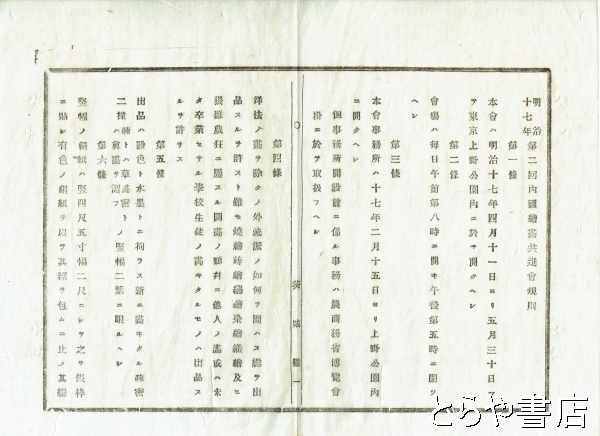 明治
十七年 第二回內國繪畫共進會規則
第一條
本會ハ明治十七年四月十一日ヨリ五月三十日マ
テ東京上野公園內ニ於テ開クヘシ
第二條
會場ハ每日午前第八時ニ開キ午後第五時ニ閉ツ
ヘシ
第三條
本會事務所ハ十七年二月十五日ヨリ上野公園內
ニ開クヘシ
但事務所開設前ニ係ル事務ハ農商務省博覽會
掛ニ於テ取扱フヘシ
茨城縣
第四條
洋法ノ畫ヲ除クノ外流派ノ如何ヲ問ハス總テ出
品スルヲ許スト雖モ燒繪蒔繪繡繪染繪織繪及ヒ
猥雜戲狂ニ屬スル圖畫ノ類幷ニ他人ノ畫或ハ未
タ卒業セサル學校生徒ノ畫キタルモノハ出品ス
ルヲ許サス
第五條
出品ハ設色ト水墨トニ拘ラス新ニ畫キタル疎密
二樣 ノ竪幅二葉ニ限ルヘシ
第六條
竪幅ノ絹紙ハ竪四尺五寸幅二尺ニシテ之ヲ假枠
ニ貼シ有色ノ絹紙ヲ以テ其緣ヲ包ムニ止メ其縮
とらや書店